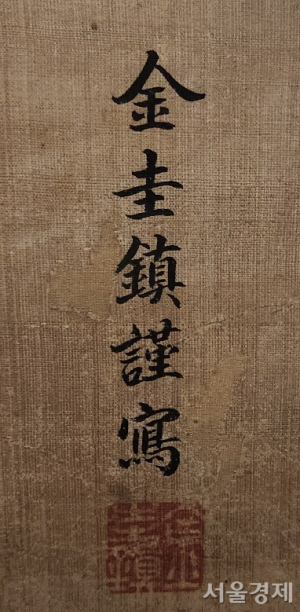 金圭鎮謹寫
서울경제